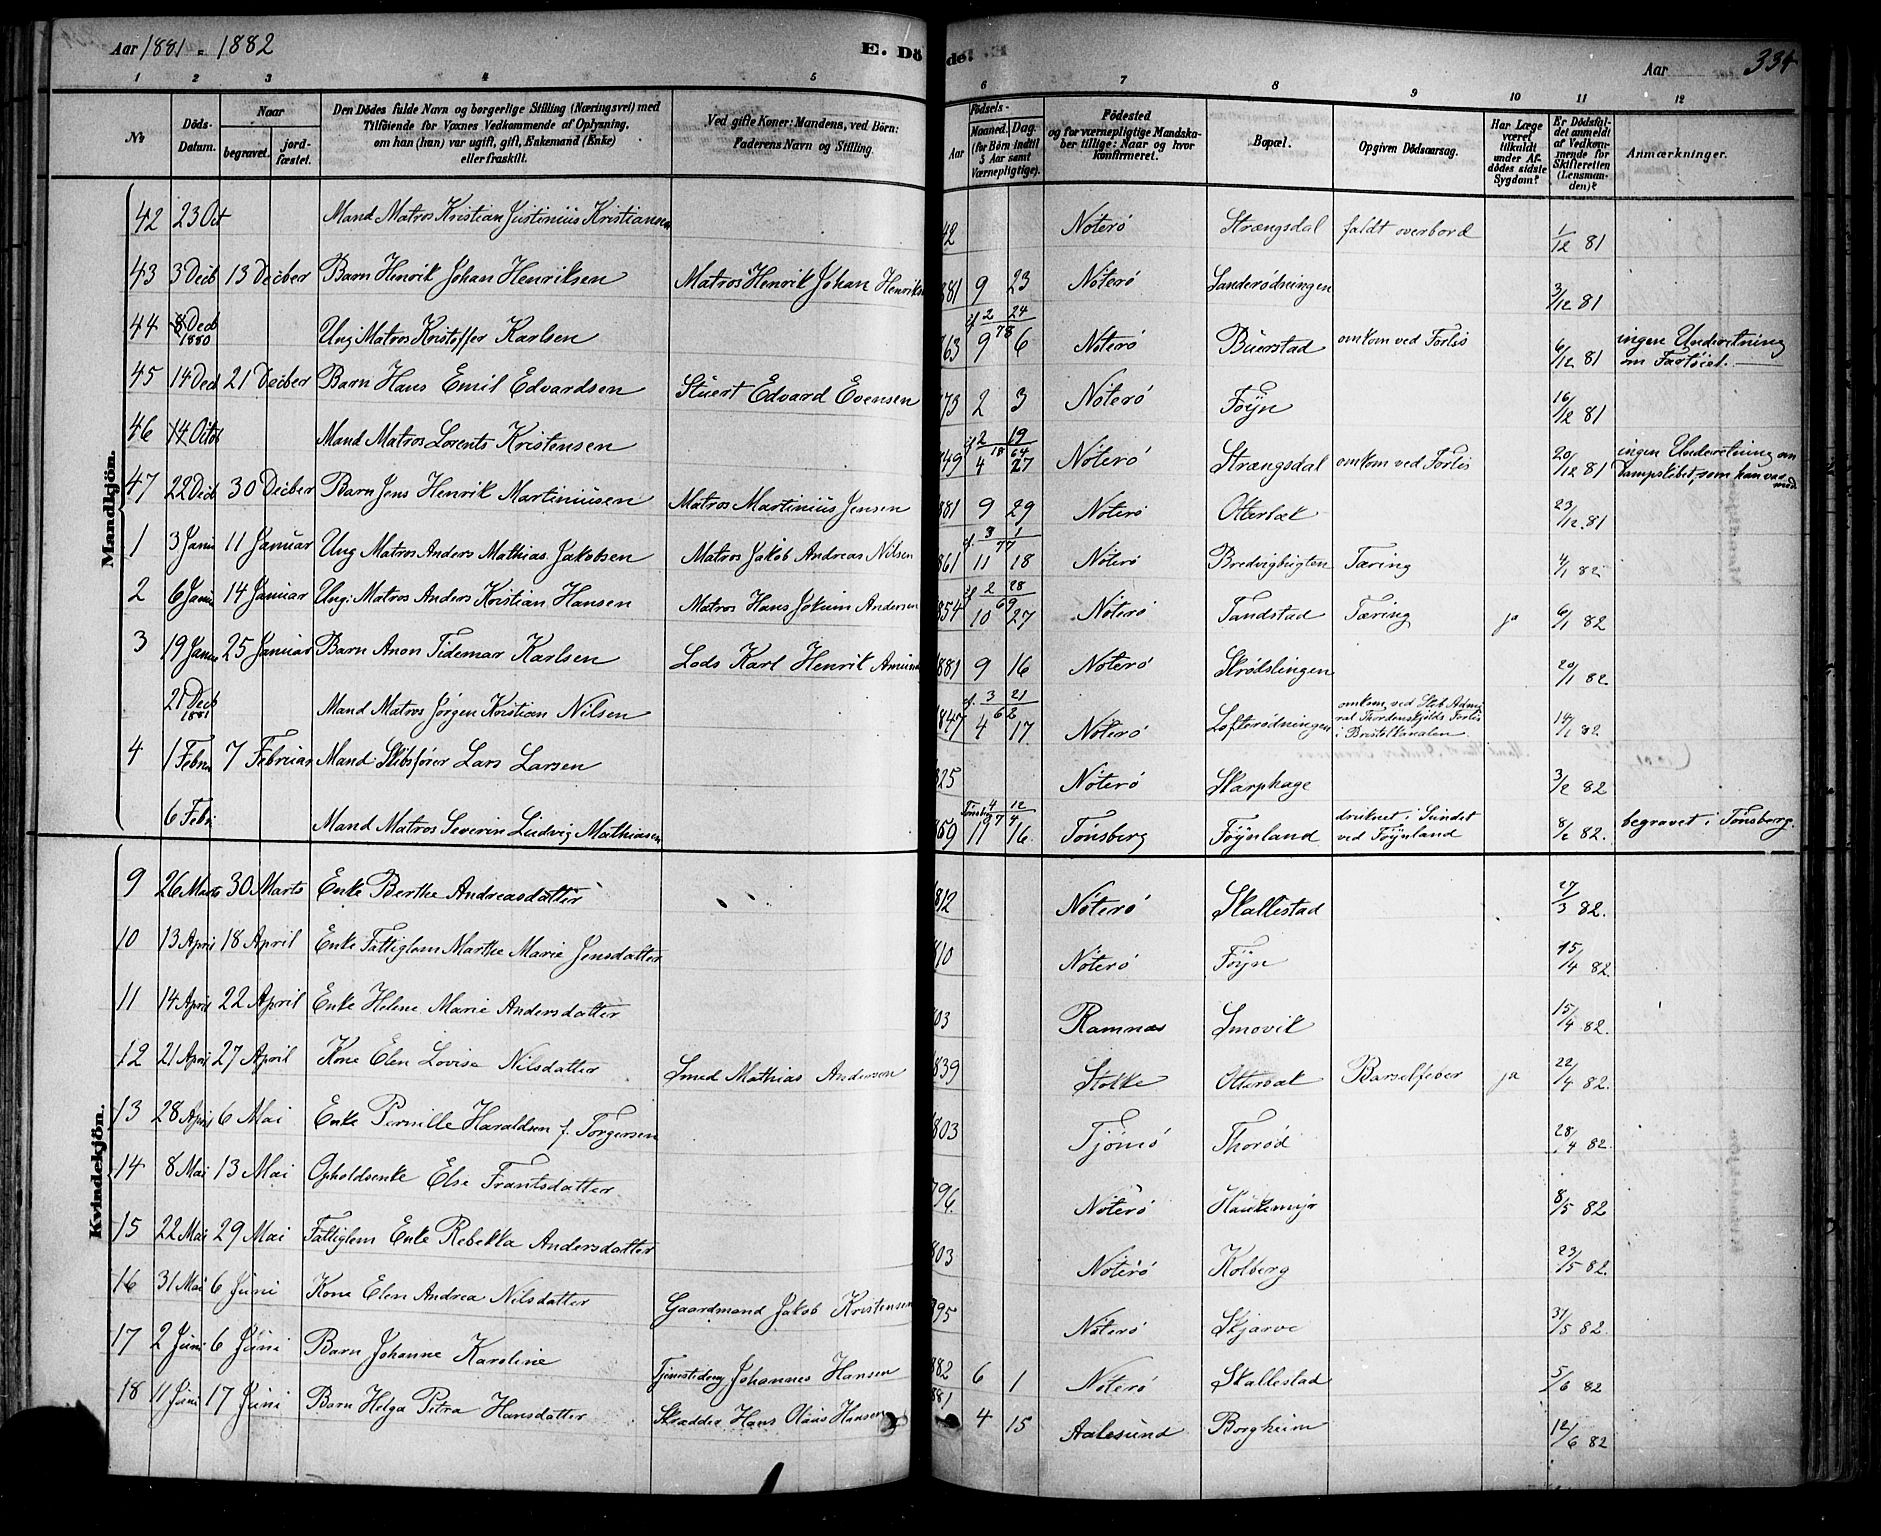 Aar 1881 = 1882 E. Dö
de. Aar 334
1 2 3 4 5 6 7 8 9 10 11 12
№ Döds-Datum. Naar begravet. jordfæstet. Den Dödes fulde Navn og borgerlige Stilling (Næringsvei) med Tilföiende for Voxnes Vedkommende af Oplysning, om han (hun) var ugift, gift, Enkemand (Enke) eller fraskilt. Ved gifte Koner: Mandens, ved Börn: Faderens Navn og Stilling. Födsels- Aar Maaned. Dag. (for Börn indtil 5 Aar samt Værnepligtige). Födested og for værnepligtige Mandskaber tillige: Naar og hvor konfirmeret. Bopæl. Opgiven Dödsaarsag. Har Læge været tilkaldt under Afdödes sidste Sygdom? Er Dödsfaldet anmeldt af Vedkommende for Skifteretten (Lensmanden)? Anmærkninger.
Mandkjön.
42 23 Oct Mand Matros Kristian Justinius Kristiansen 42 Nøterø Strængsdal faldt overbord 1/12 81
43 3 Decb 13 Decber Barn Henrik Johan Henriksen Matros Henrik Johan Henriks 881 9 23 Nøterø Sanderødningen 3/12 81
44 8 Decb 1880 Ung. Matros Kristoffer Karlsen 63 9 6 cf 2/24 78 Nøterø Buerstad omkom ved Forlis 6/12 81 ingen Underretning om Fartøiet.
45 14 Decb 21 Decber Barn Hans Emil Edvardsen Stuert Edvard Evensen 73 2 3 Nøterø Føyn 16/12 81
46 14 Octob Mand Matros Lorents Kristensen 849 4 27 cf 2/18 19/64 Nøterø Strængsdal omkom ved Forlis 20/12 81 ingen Underretning om Dampskibet, som han var med
47 22 Decb 30 Decber Barn Jens Henrik Martiniusen Matros Martinius Jensen 881 9 29 Nøterø Otterbæk 23/12 81
1 3 Janu 11 Januar Ung Matros Anders Mathias Jakobsen Matros Jakob Andreas Nilsen 861 11 18 cf. 3/1 77 Nøterø Bredvigbugten Tæring 4/1 82
2 6 Janu 14 Januar Ung: Matros Anders Kristian Hansen Matros Hans Jokum Andersen 854 10 27 cf 2/28 69 Nøterø Tandstad Tæring ja 6/1 82
3 19 Janu 25 Januar Barn Anon Tidemar Karlsen Lods Karl Henrik Amund 881 9 16 Nøterø Skrødslingen 20/1 82
21 Decb 1881 Mand Matros Jørgen Kristian Nilsen 1847 4 17 cf. 3/21 62 Nøterø Lofterødningen omkom ved Skb Admiral Thordenskjolds Forlis i Bristolkanalen 14/1 82
4 1 Febru 7 Februar Mand Skibsfører Lars Larsen 825 Nøterø Skarphage 3/2 82
6 Febr Mand Matros Severin Ludvig Mathiasen 859 11 16 Tønsberg 4/12 74 Tønsberg Føynland druknet i Sundet ved Føynland 8/2 82. begravet i Tønsberg.
Kvindekjön.
9 26 Marts 30 Marts Enke Berthe Andreasdatter 1812 Nøterø Skallestad 27/3 82.
10 13 April 18 April Enke Fattiglem Marthe Marie Jensdatter 810 Nøterø Føyn 15/4 82
11 14 April 22 April Enke Helene Marie Andersdatter 03 Ramnæs Smovik 15/4 82.
12 21 April 27 April Kone Elen Lovise Nilsdatter Smed Mathias Andersen 839 Stokke Otterbæk Barselfeber ja 22/4 82.
13 28 April 6 Mai Enke Pernille Haraldsen f. Torgersen 803 Tjømø Thorød 28/4 82.
14 8 Mai 13 Mai Opholdsenke Else Frantsdatter 796 Nøterø Haukemyr 8/5 82
15 22 Mai 29 Mai Fattiglem Enke Rebekka Andersdatter 803 Nøterø Kolberg 23/5 82.
16 31 Mai 6 Juni Kone Elen Andrea Nilsdatter Gaardmand Jakob Kristensen 95 Nøterø Skjærve 31/5 82.
17 2 Juni 6 Juni Barn Johanne Karoline Johannes Hansen 882 6 1 Nøterø Skallestad 5/6 82
18 11 Juni 17 Juni Barn Helga Petra Hansdatter Skrædder Hans Olaus Hansen 881 4 15 Aalesund Borgheim 12/6 82